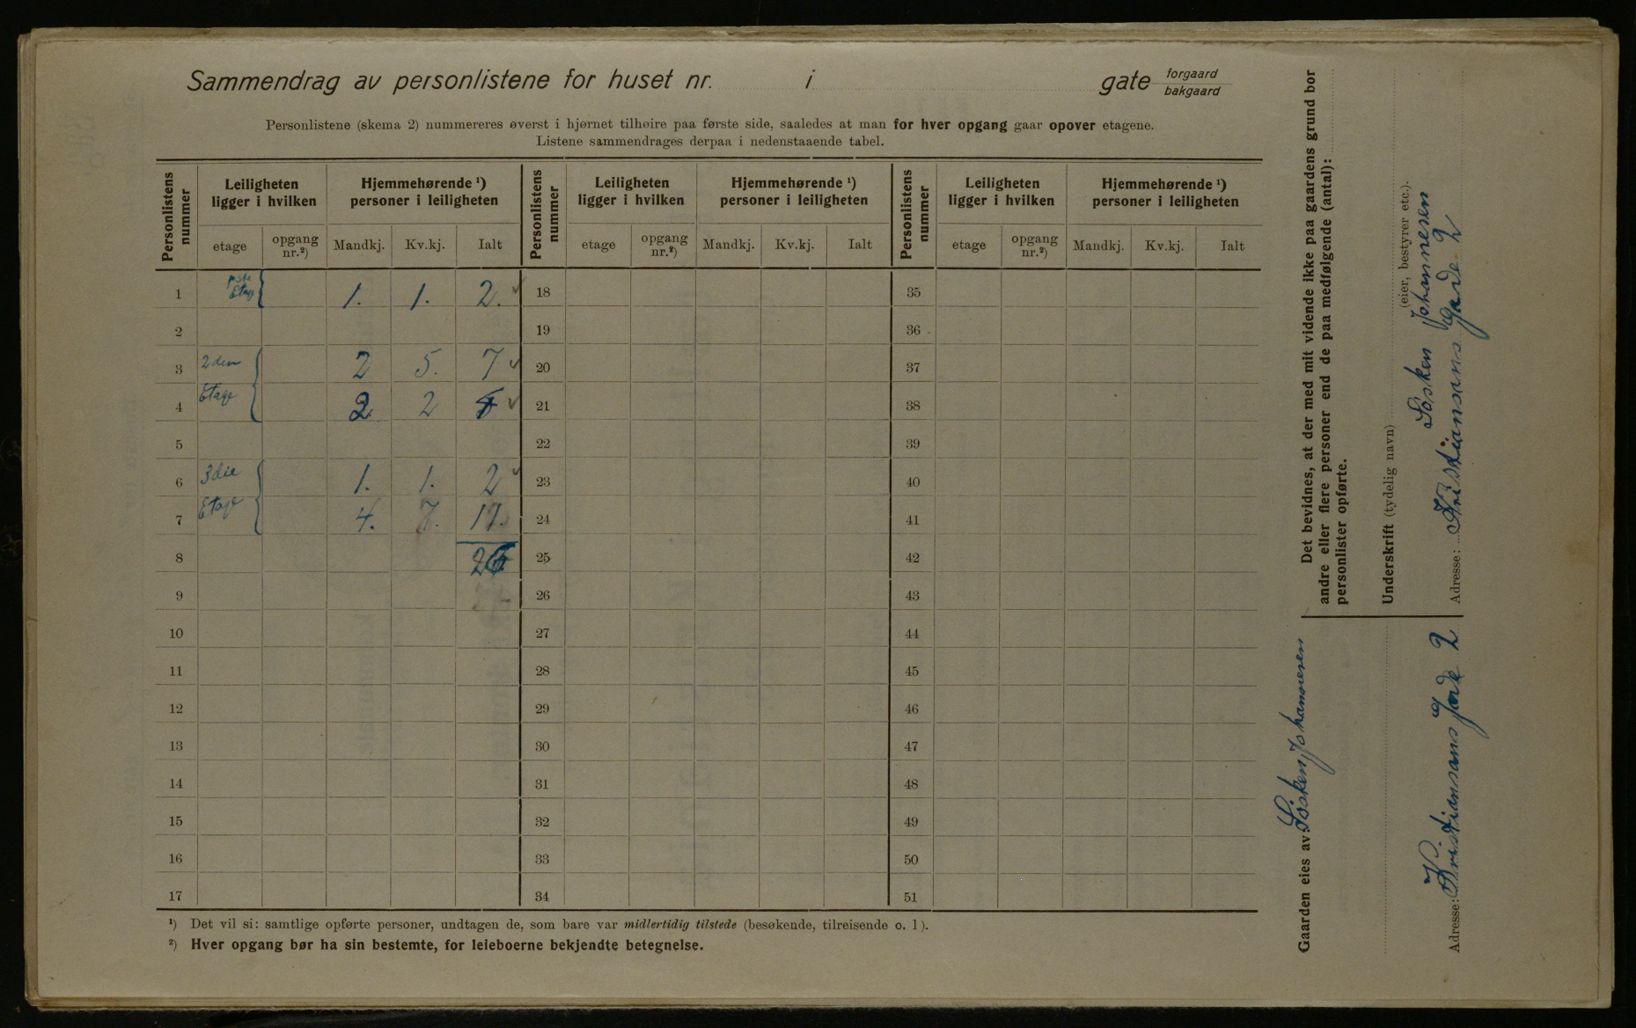 Sammendrag av personlistene for huset nr. i gate forgaard bakgaard
Personlistene (skema 2) nummereres øverst i hjørnet tilhøire paa første side, saaledes at man for hver opgang gaar opover etagene.
Listene sammendrages derpaa i nedenstaaende tabel.
Personlistens nummer | Leiligheten ligger i hvilken | Hjemmehørende ¹) personer i leiligheten | Personlistens nummer | Leiligheten ligger i hvilken | Hjemmehørende ¹) personer i leiligheten | Personlistens nummer | Leiligheten ligger i hvilken | Hjemmehørende ¹) personer i leiligheten
etage | opgang nr.²) | Mandkj. | Kv.kj. | Ialt | etage | opgang nr.²) | Mandkj. | Kv.kj. | Ialt | etage | opgang nr.²) | Mandkj. | Kv.kj. | Ialt
1 Etage 1. 1. 2. 18 35
2 19 36
3 2den 2 5. 7 20 37
4 Etage 2 2 21 38
5 22 39
6 3die 1. 1. 2 23 40
7 Etage 4. 7. 11. 24 41
8 26 25 42
9 26 43
10 27 44
11 28 45
12 29 46
13 30 47
14 31 48
15 32 49
16 33 50
17 34 51
¹) Det vil si: samtlige opførte personer, undtagen de, som bare var midlertidig tilstede (besøkende, tilreisende o. l).
²) Hver opgang bør ha sin bestemte, for leieboerne bekjendte betegnelse.
Gaarden eies av Søsken Johannesen
Adresse: Kristiansans Gade 2
Det bevidnes, at der med mit vidende ikke paa gaardens grund bor
andre eller flere personer end de paa medfølgende (antal):
personlister opførte.
Underskrift (tydelig navn) Søsken Johannesen
(eier, bestyrer etc.).
Adresse: Kristiansans Gade 2